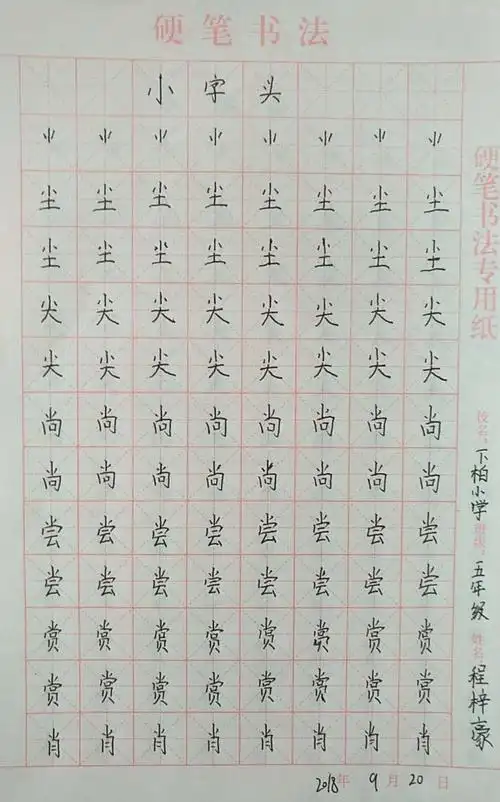 硬笔书法
小字头
⺌⺌⺌⺌⺌⺌⺌⺌
尘尘尘尘尘尘尘尘
尘尘尘尘尘尘尘尘
尖尖尖尖尖尖尖尖
尖尖尖尖尖尖尖尖
尚尚尚尚尚尚尚尚
尚尚尚尚尚尚尚尚
尝尝尝尝尝尝尝尝
尝尝尝尝尝尝尝尝
赏赏赏赏赏赏赏赏
赏赏赏赏赏赏赏赏
肖肖肖肖肖肖肖肖
2018年9月20日
硬笔书法专用纸
校名:下柏小学 班级:五年级 姓名:程梓豪